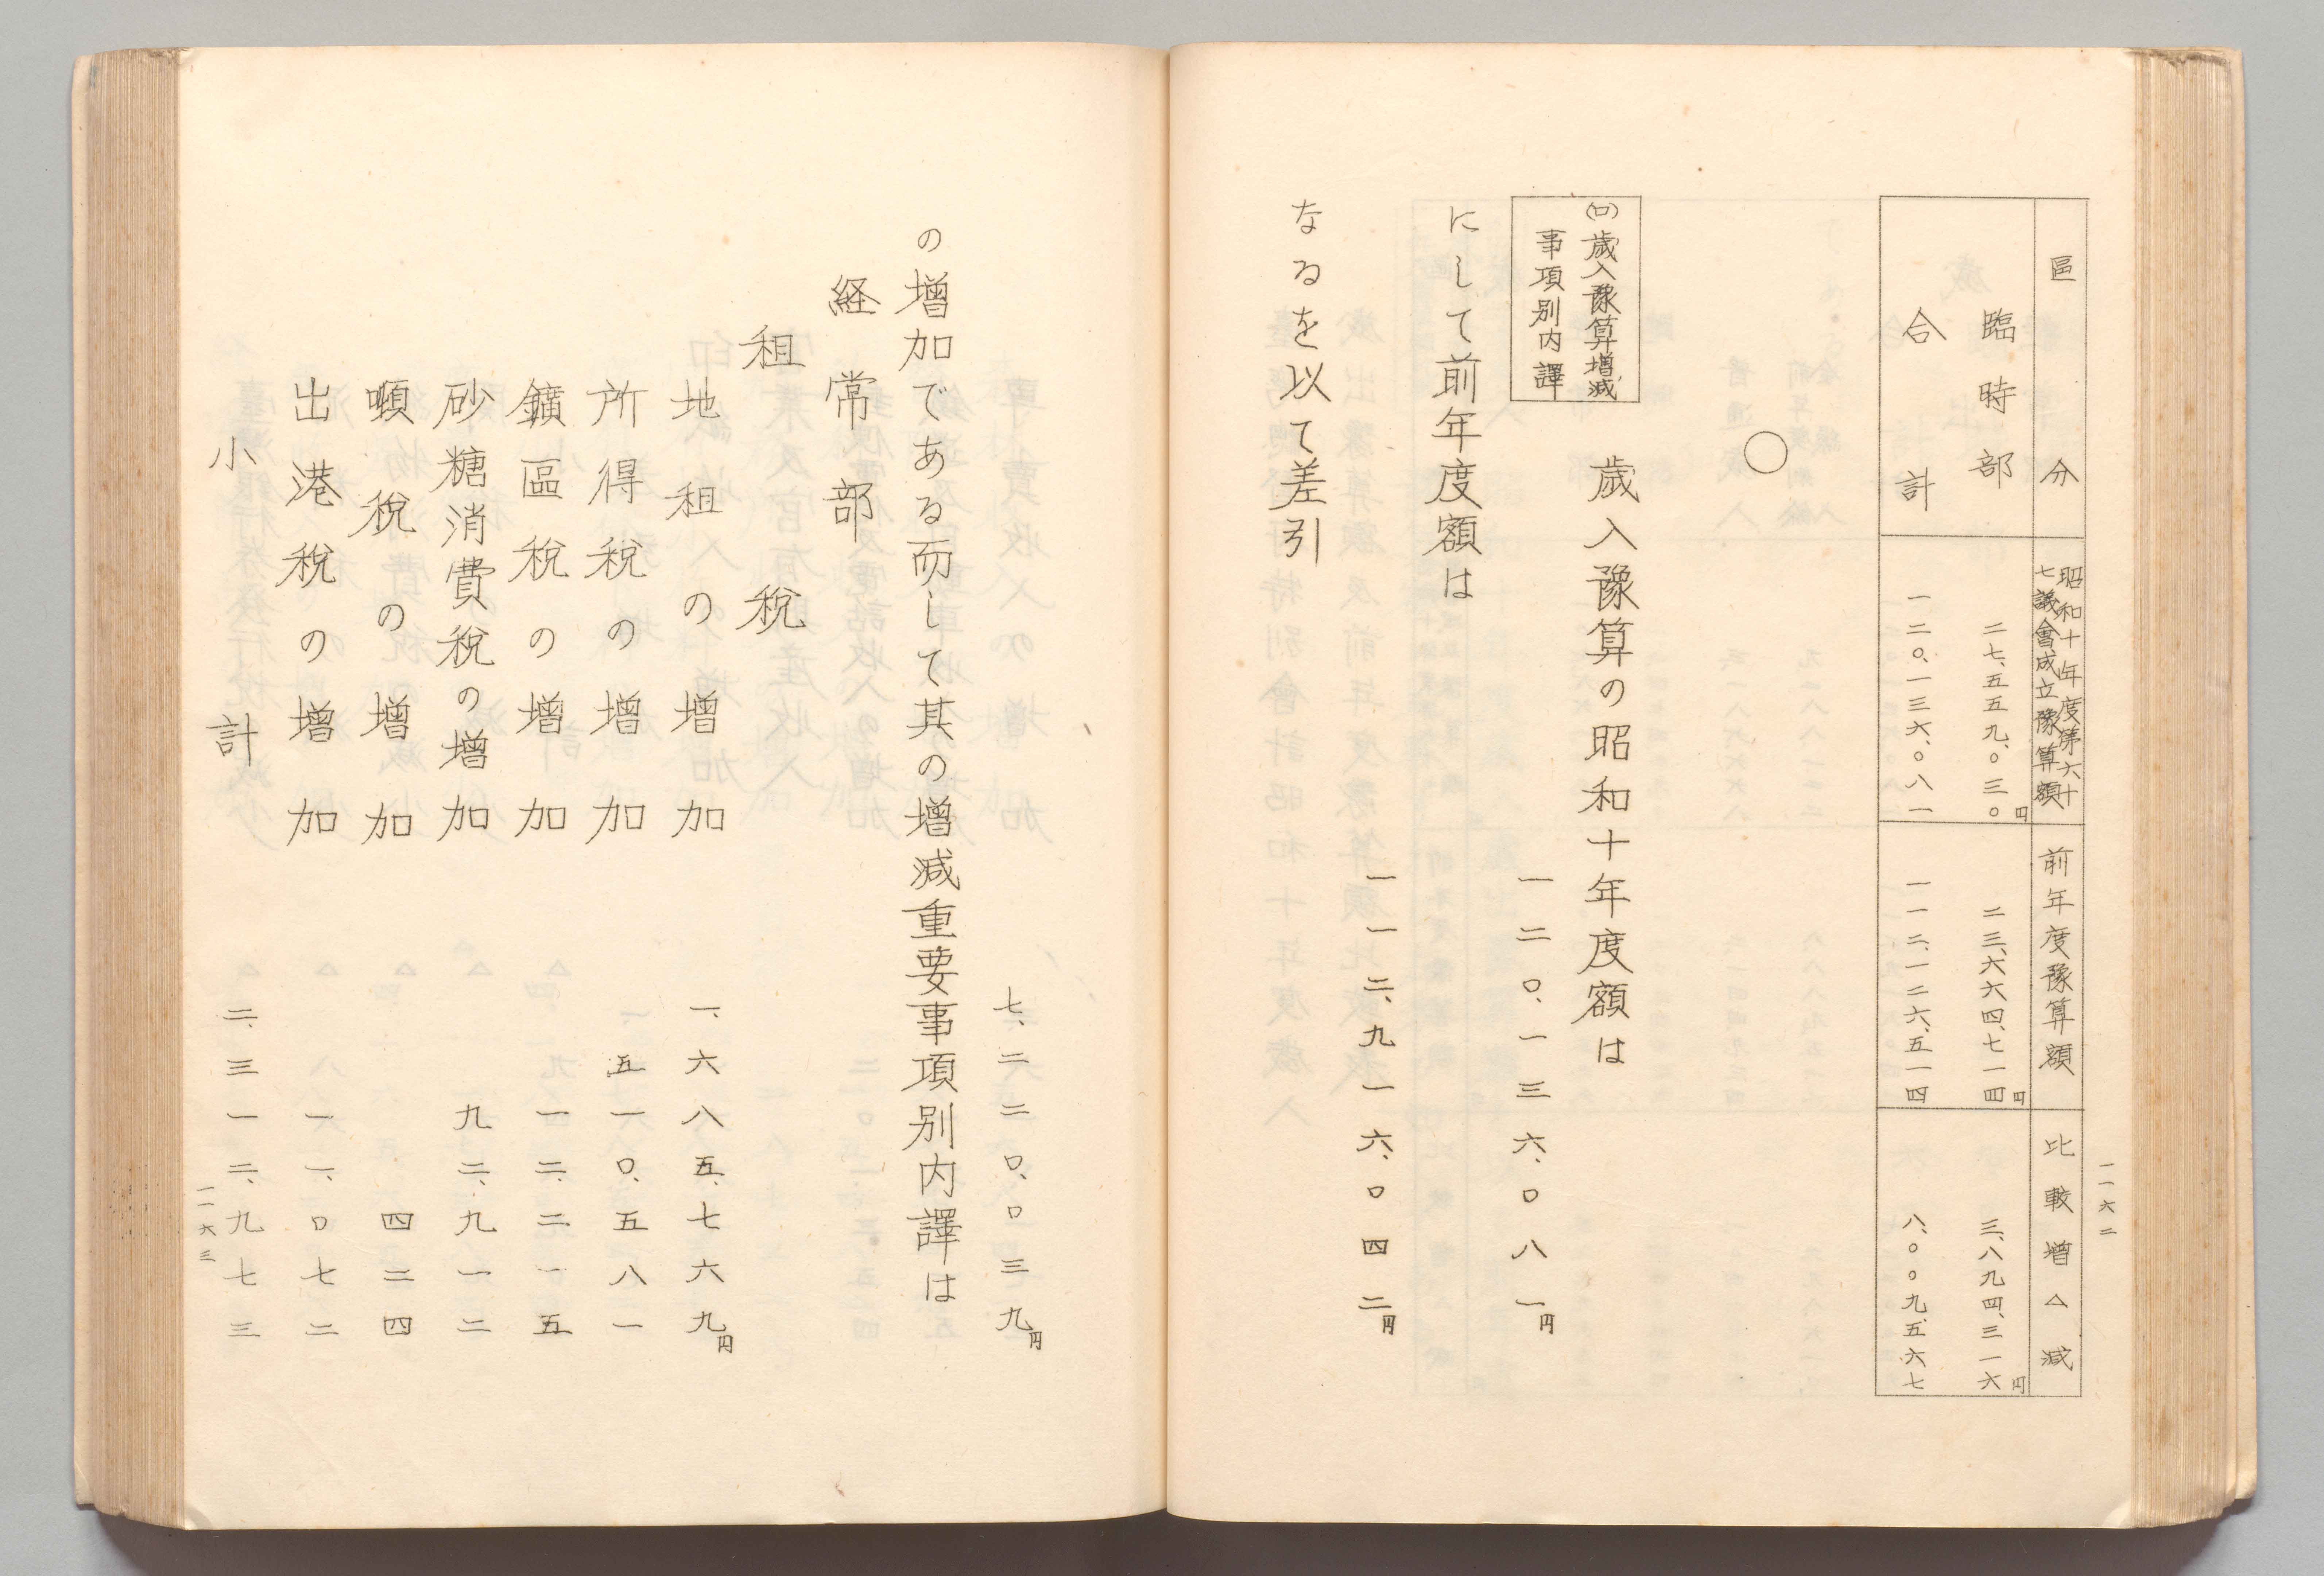 一一六二
區分　昭和十年度第六十七議會成立豫算額　前年度豫算額　比較増△減
臨時部　二七、五五九、〇三〇円　二三、六六四、七一四円　三、八九四、三一六円
合計　一二〇、一三六、〇八一　一一二、一二六、五一四　八、〇〇九、五六七
○
(ロ)歳入豫算増減
事項別内譯
歳入豫算の昭和十年度額は
一二〇、一三六、〇八一円
にして前年度額は
一一二、九一六、〇四二円
なるを以て差引
七、二二〇、〇三九円
の増加である而して其の増減重要事項別内譯は
経常部
租税
地租の増加　一、六八五、七六九円
所得税の増加　五一〇、五八一
鑛區税の増加　一二、二一五
砂糖消費税の増加　九二、九一二
噸税の増加　四二四
出港税の増加　一一、〇七二
小計　二、三一二、九七三
一一六三